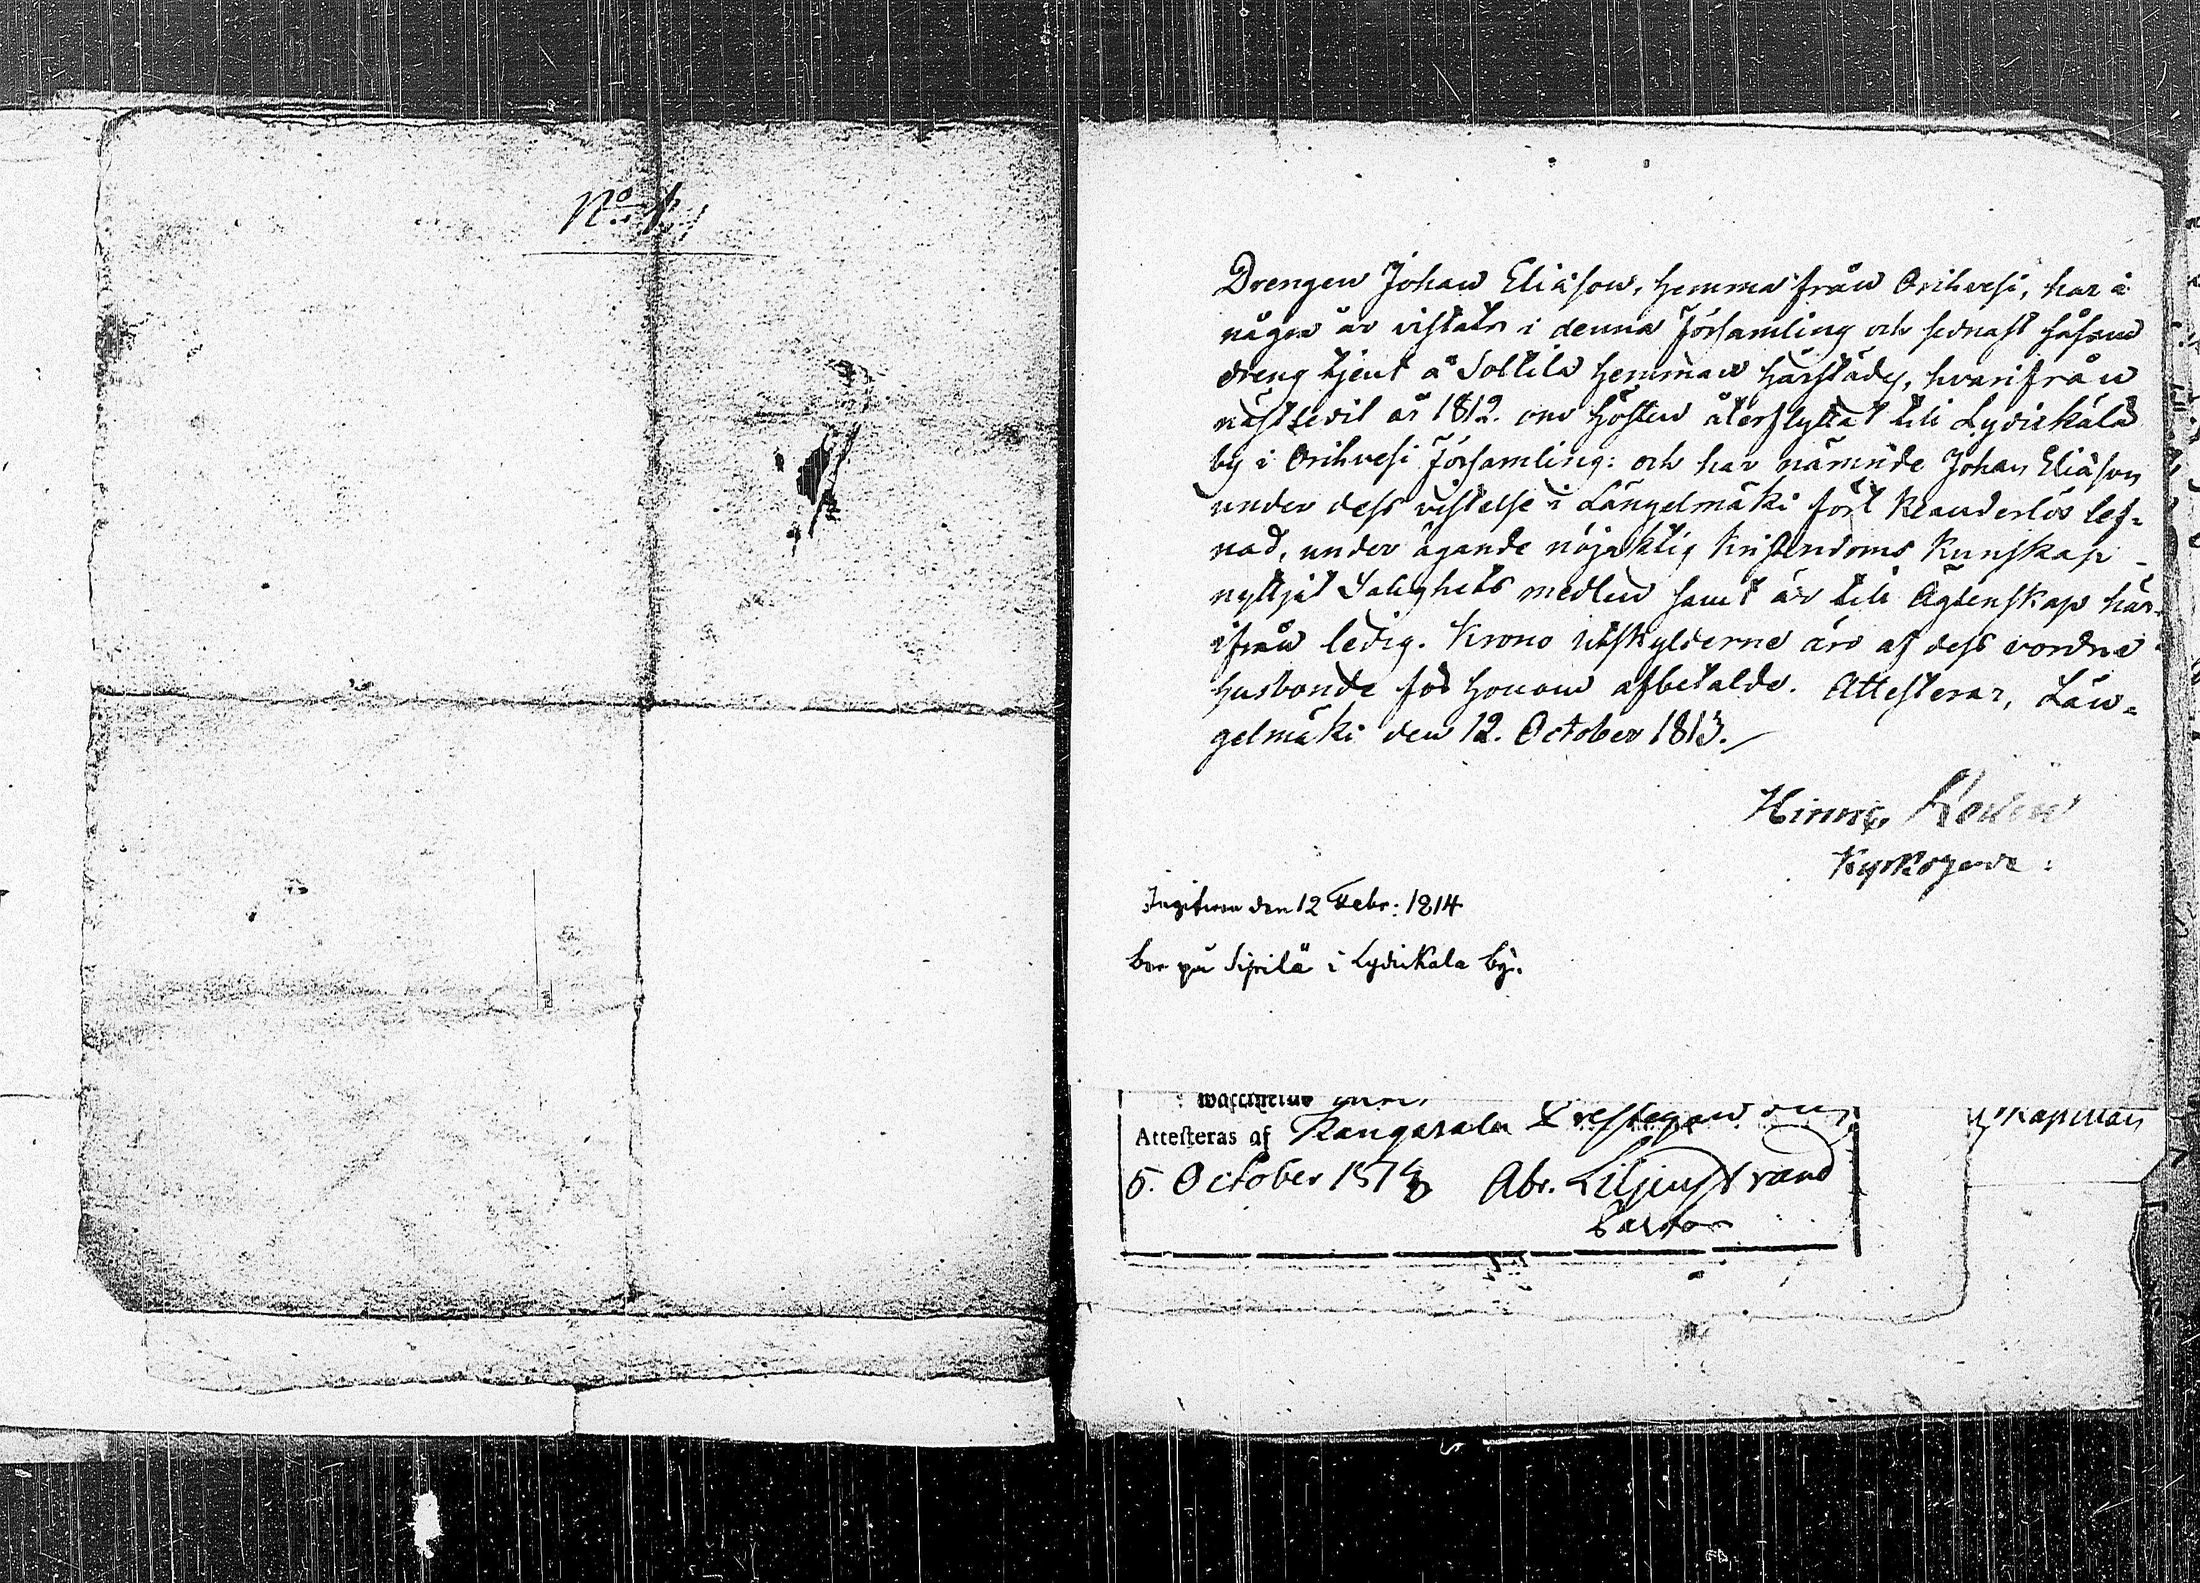 No 1,
Drengen Johan Eliäson, hemma från Orihvesi, har i
några år vistats i denna Församling och sednast såsom
dreng tjent å Solttila hemman härstädes, hvarifrån
nästledit år 1812. om hösten återflyttat till Lydickälä
by i Orihvesi Församling: och har nämnde Johan Eliäson
under dess vistelse i Längelmäki fört klanderlös lef-
nad, under ägande nöjaktig Kristendoms Kunskap
nyttjat Salighets medlen samt är till Ägtenskap här-
ifrån ledig. Krono utskylderne äro af dess vordne
husbonde för honom afbetalde. Attesterar, Län-
gelmäki den 12. October 1813.
Kyrkoherde:
Ingifven den 12 Febr: 1814
bor på Sipilä i Lydickala by.
Attesteras af Kangasala Prestegård den
5. October 181 Abr. Liljenstrand
Pastor
Kapellan